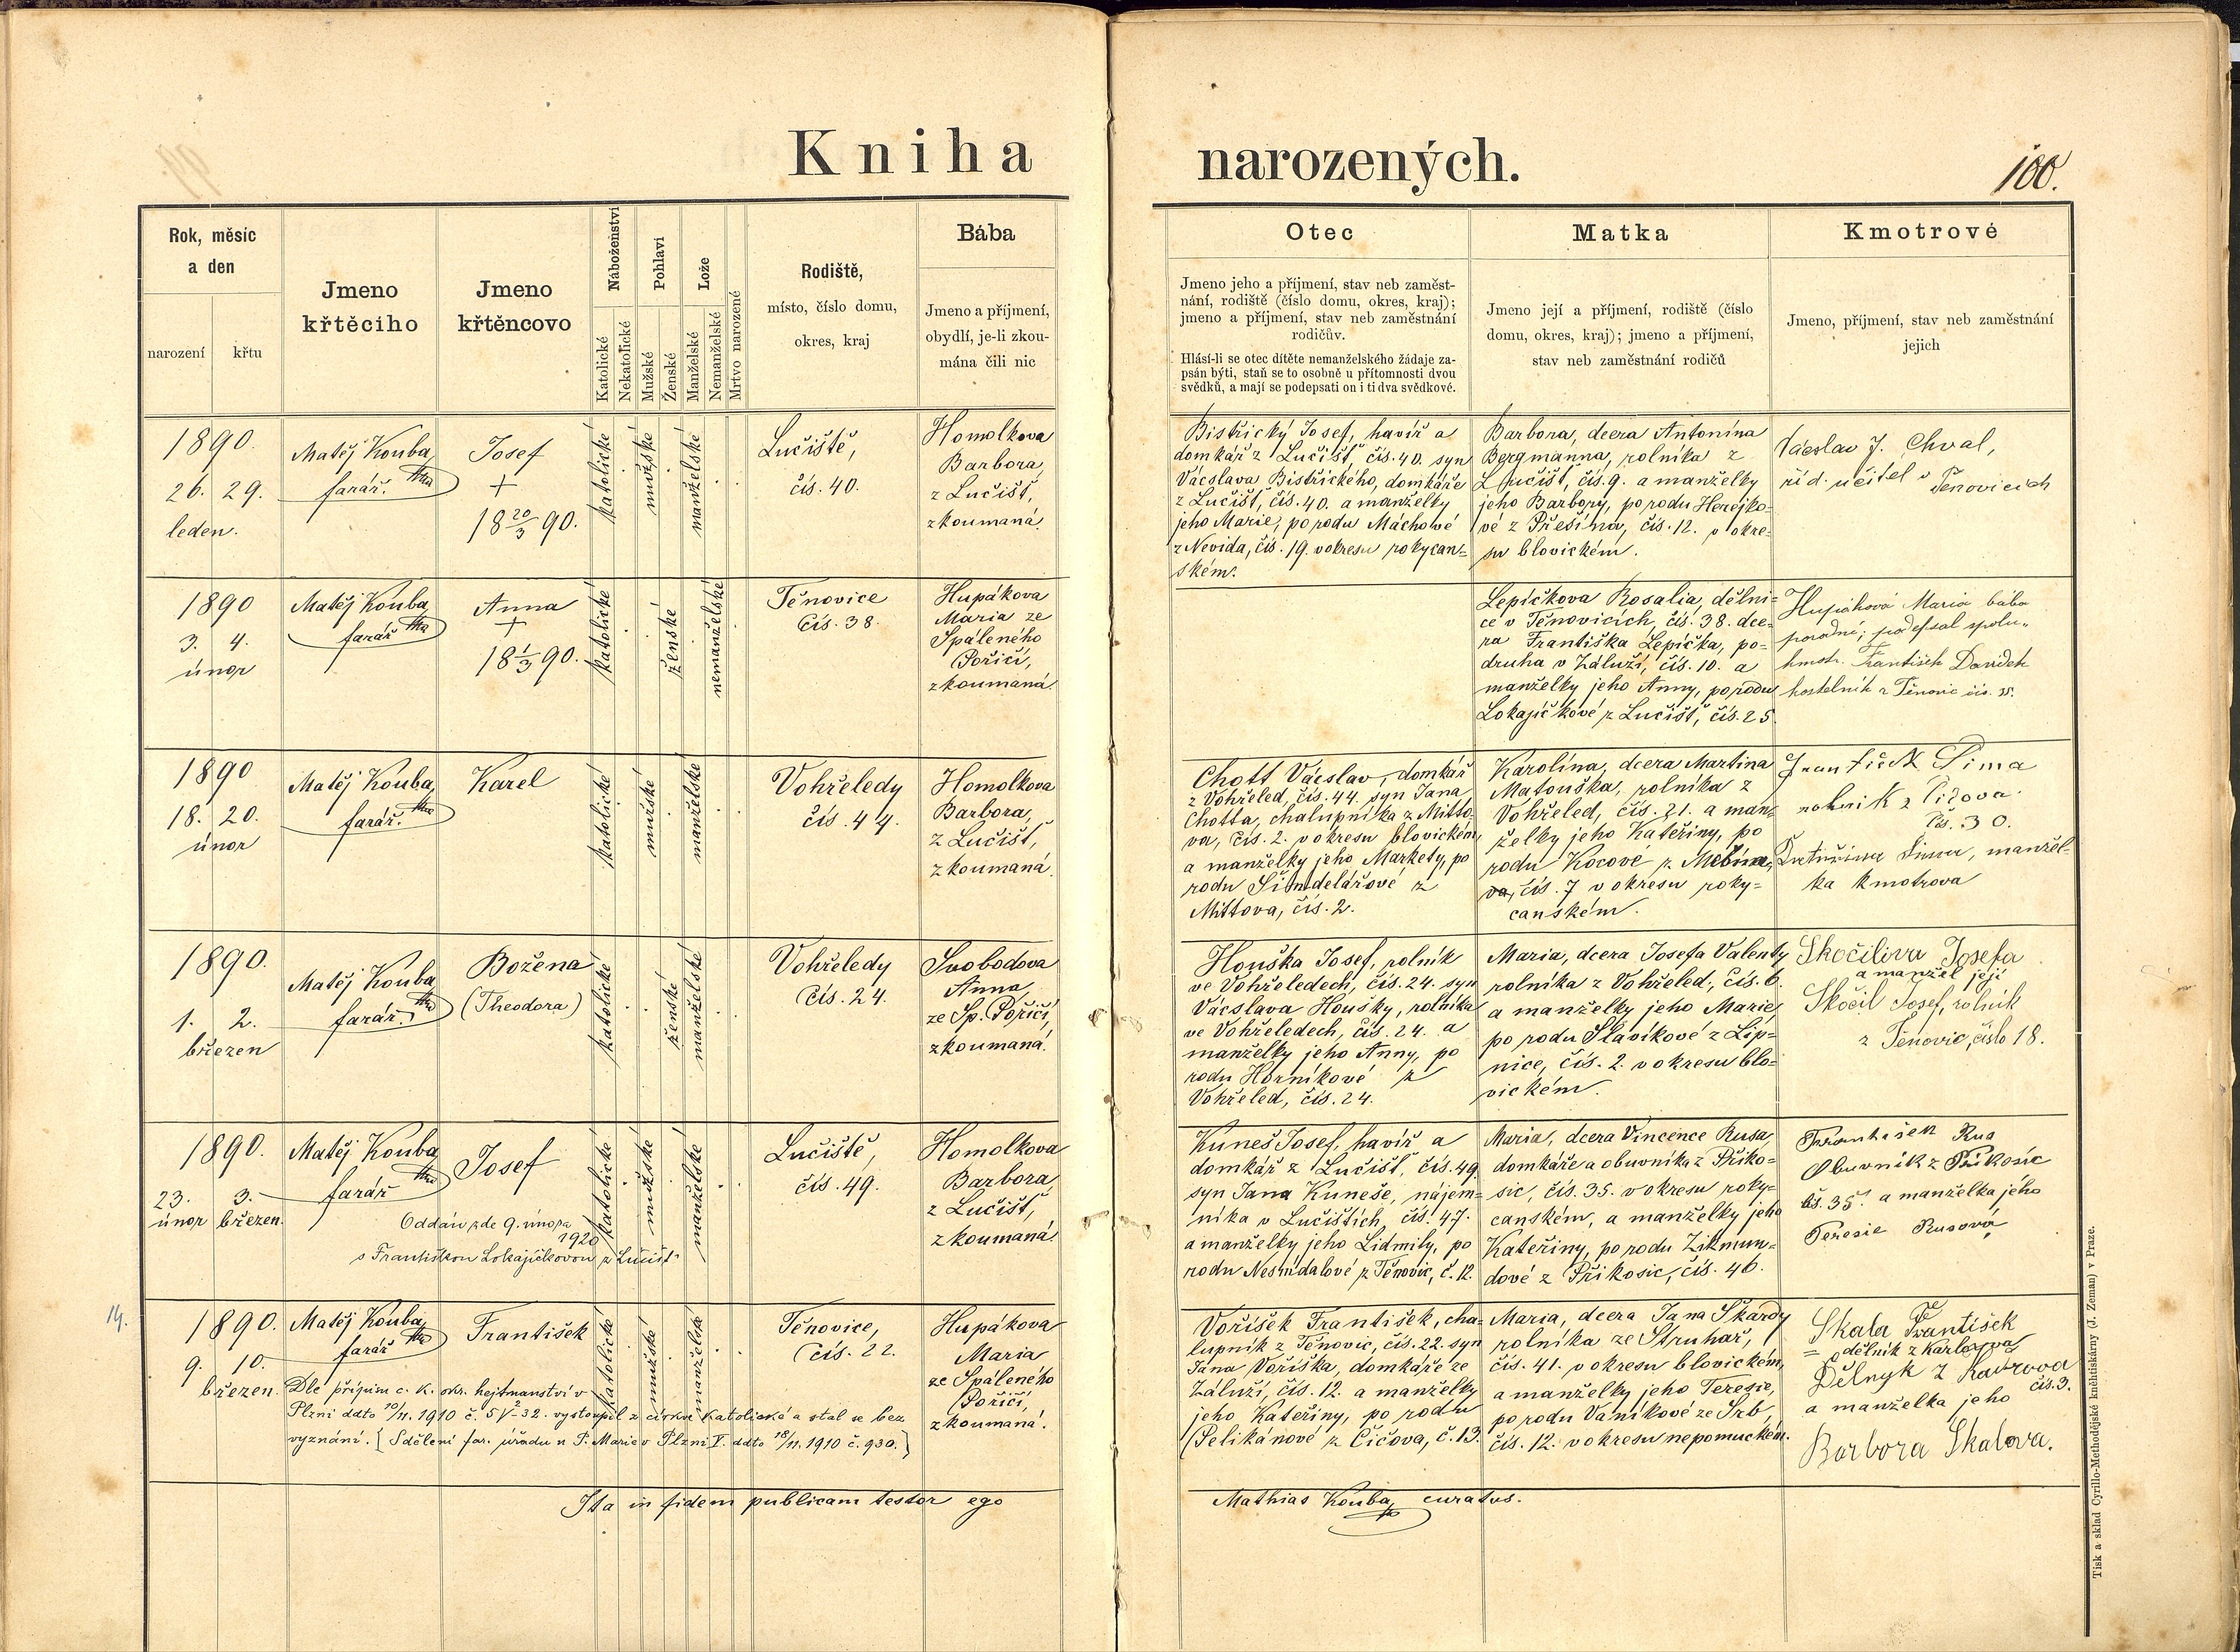 Kniha narozených.
100.
Rok, měsíc
a den
narození
křtu
Jmeno
křtěcího
Jmeno
křtěncovo
Náboženství
Katolické
Nekatolické
Pohlaví
Mužské
Ženské
Lože
Manželské
Nemanželské
Mrtvo narozené
Rodiště,
místo, číslo domu,
okres, kraj
Bába
Jmeno a příjmení,
obydlí, je-li zkou-
mána čili nic
Otec
Jmeno jeho a příjmení, stav neb zaměst-
nání, rodiště (číslo domu, okres, kraj);
jmeno a příjmení, stav neb zaměstnání
rodičův.
Hlásí-li se otec dítěte nemanželského žádaje za-
psán býti, staň se to osobně u přítomnosti dvou
svědků, a mají se podepsati on i ti dva svědkové.
Matka
Jmeno její a příjmení, rodiště (číslo
domu, okres, kraj); jmeno a příjmení,
stav neb zaměstnání rodičů
Kmotrové
Jmeno, příjmení, stav neb zaměstnání
jejich
1890.
26. 29.
leden.
Matěj Kouba,
farář.
Josef
+
18 20/3 90.
katolické
mužské
manželské
Lučiště,
čís. 40.
Homolkova
Barbora,
z Lučišť,
zkoumaná.
Bistřický Josef, havíř a
domkář z Lučišť, čís. 40. syn
Václava Bistřického, domkáře
z Lučišť, čís. 40. a manželky
jeho Marie, po rodu Máchové
z Nevida, čís. 19. v okresu rokycan=
ském.
Barbora, dcera Antonína
Bergmanna, rolníka z
Lučišť, čís. 9. a manželky
jeho Barbory, po rodu Herejko-
vé z Přešína, čís. 12. v okre-
su blovickém.
Václav J. Chval,
říd. učitel v
Těnovicích
1890
3. 4.
únor
Matěj Kouba,
farář
Anna
+
18 1/3 90.
katolické
ženské
nemanželské
Těnovice
čís. 38.
Hupákova
Maria ze
Spáleného
Poříčí,
zkoumaná.
Lepíčkova Rosalia, dělni=
ce v Těnovicích, čís. 38. dce=
ra Františka Lepíčka, po=
druha v Záluží, čís. 10. a
manželky jeho Anny, po rodu
Lokajíčkové z Lučišť, čís. 25.
Hupáková Maria bába
porodní; podepsal spolu-
kmotr. František Davídek
kostelník z Těnovic čís. 35.
1890
18. 20.
únor
Matěj Kouba,
farář.
Karel
katolické
mužské
manželské
Vohřeledy
čís. 44.
Homolkova
Barbora,
z Lučišť,
zkoumaná.
Chott Václav, domkář
z Vohřeled, čís. 44. syn Jana
Chotta, chalupníka z Mitto-
va, čís. 2. v okresu blovickém,
a manželky jeho Markety, po
rodu Šindelářové z
Mittova, čís. 2.
Karolína, dcera Martina
Matouška, rolníka z
Vohřeled, čís. 21. a man=
želky jeho Kateřiny, po
rodu Kocové z
va, čís. 7 v okresu roky=
canském.
František Šíma
rolník z Čížova
čís. 30.
Šímová, manžel-
ka kmotrova
1890.
1. 2.
březen
Matěj Kouba,
farář.
Božena
(Theodora)
katolické
ženské
manželské
Vohřeledy
čís. 24.
Svobodova
Anna,
ze Sp. Poříčí,
zkoumaná.
Houška Josef, rolník
ve Vohřeledech, čís. 24. syn
Václava Houšky, rolníka
ve Vohřeledech, čís. 24. a
manželky jeho Anny, po
rodu Horníkové z
Vohřeled, čís. 24.
Maria, dcera Josefa Valenty
rolníka z Vohřeled, čís. 6.
a manželky jeho Marie,
po rodu Slavíkové z Lip=
nice, čís. 2. v okresu blo-
vickém.
Skočilova Josefa
a manžel její
Skočil Josef, rolník
z Těnovic, číslo 18.
1890.
23. 3.
únor březen.
Matěj Kouba,
farář
Josef
Oddán zde 9. února
1920
s Františkou Lokajíčkovou z Lučišť
katolické
mužské
manželské
Lučiště,
čís. 49.
Homolkova
Barbora,
z Lučišť,
zkoumaná.
Kuneš Josef, havíř a
domkář z Lučišť, čís. 49.
syn Jana Kuneše, nájem-
níka v Lučištích, čís. 47.
a manželky jeho Lidmily, po
rodu Nesnídalové z Těnovic, č. 12.
Maria, dcera Vincence Rusa,
domkáře a obuvníka z Příko=
sic, čís. 35. v okresu roky=
canském, a manželky jeho
Kateřiny, po rodu Zikmun=
dové z Příkosic, čís. 46.
František Rus
Obuvník z Příkosic
čís. 35 a manželka jého
Teresie Rusová
14.
1890.
9. 10.
březen.
Matěj Kouba,
farář
František
katolické
mužské
manželské
Těnovice,
čís. 22.
Hupákova
Maria
ze Spáleného
Poříčí,
zkoumaná.
Dle přípisu c. k. okr. hejtmanství v
Plzni ddto 10/11. 1910 č. 5 V-2-32. vystoupil z církve katolické a stal se bez
vyznání. [Sdělení far. úřadu u P. Marie v Plzni V. ddto 18/11. 1910 č. 930.]
Voříšek František, cha=
lupník z Těnovic, čís. 22. syn
Jana Voříška, domkáře ze
Záluží, čís. 12. a manželky
jeho Kateřiny, po rodu
Pelikánové z Číčova, č. 13.
Maria, dcera Jana Škardy
rolníka ze Struhař,
čís. 41. v okresu blovickém,
a manželky jeho Teresie,
po rodu Vaníkové ze Srb,
čís. 12. v okresu nepomuckém.
Skala František
= dělník z Karlova
Dělnyk z Karlova
čís. 3.
a manželka jeho
Barbora Skalova.
Ita in fidem publicam testor ego
Mathias Kouba, curatus.
Tisk a sklad Cyrillo-Methodějské knihtiskárny (J. Zeman) v Praze.